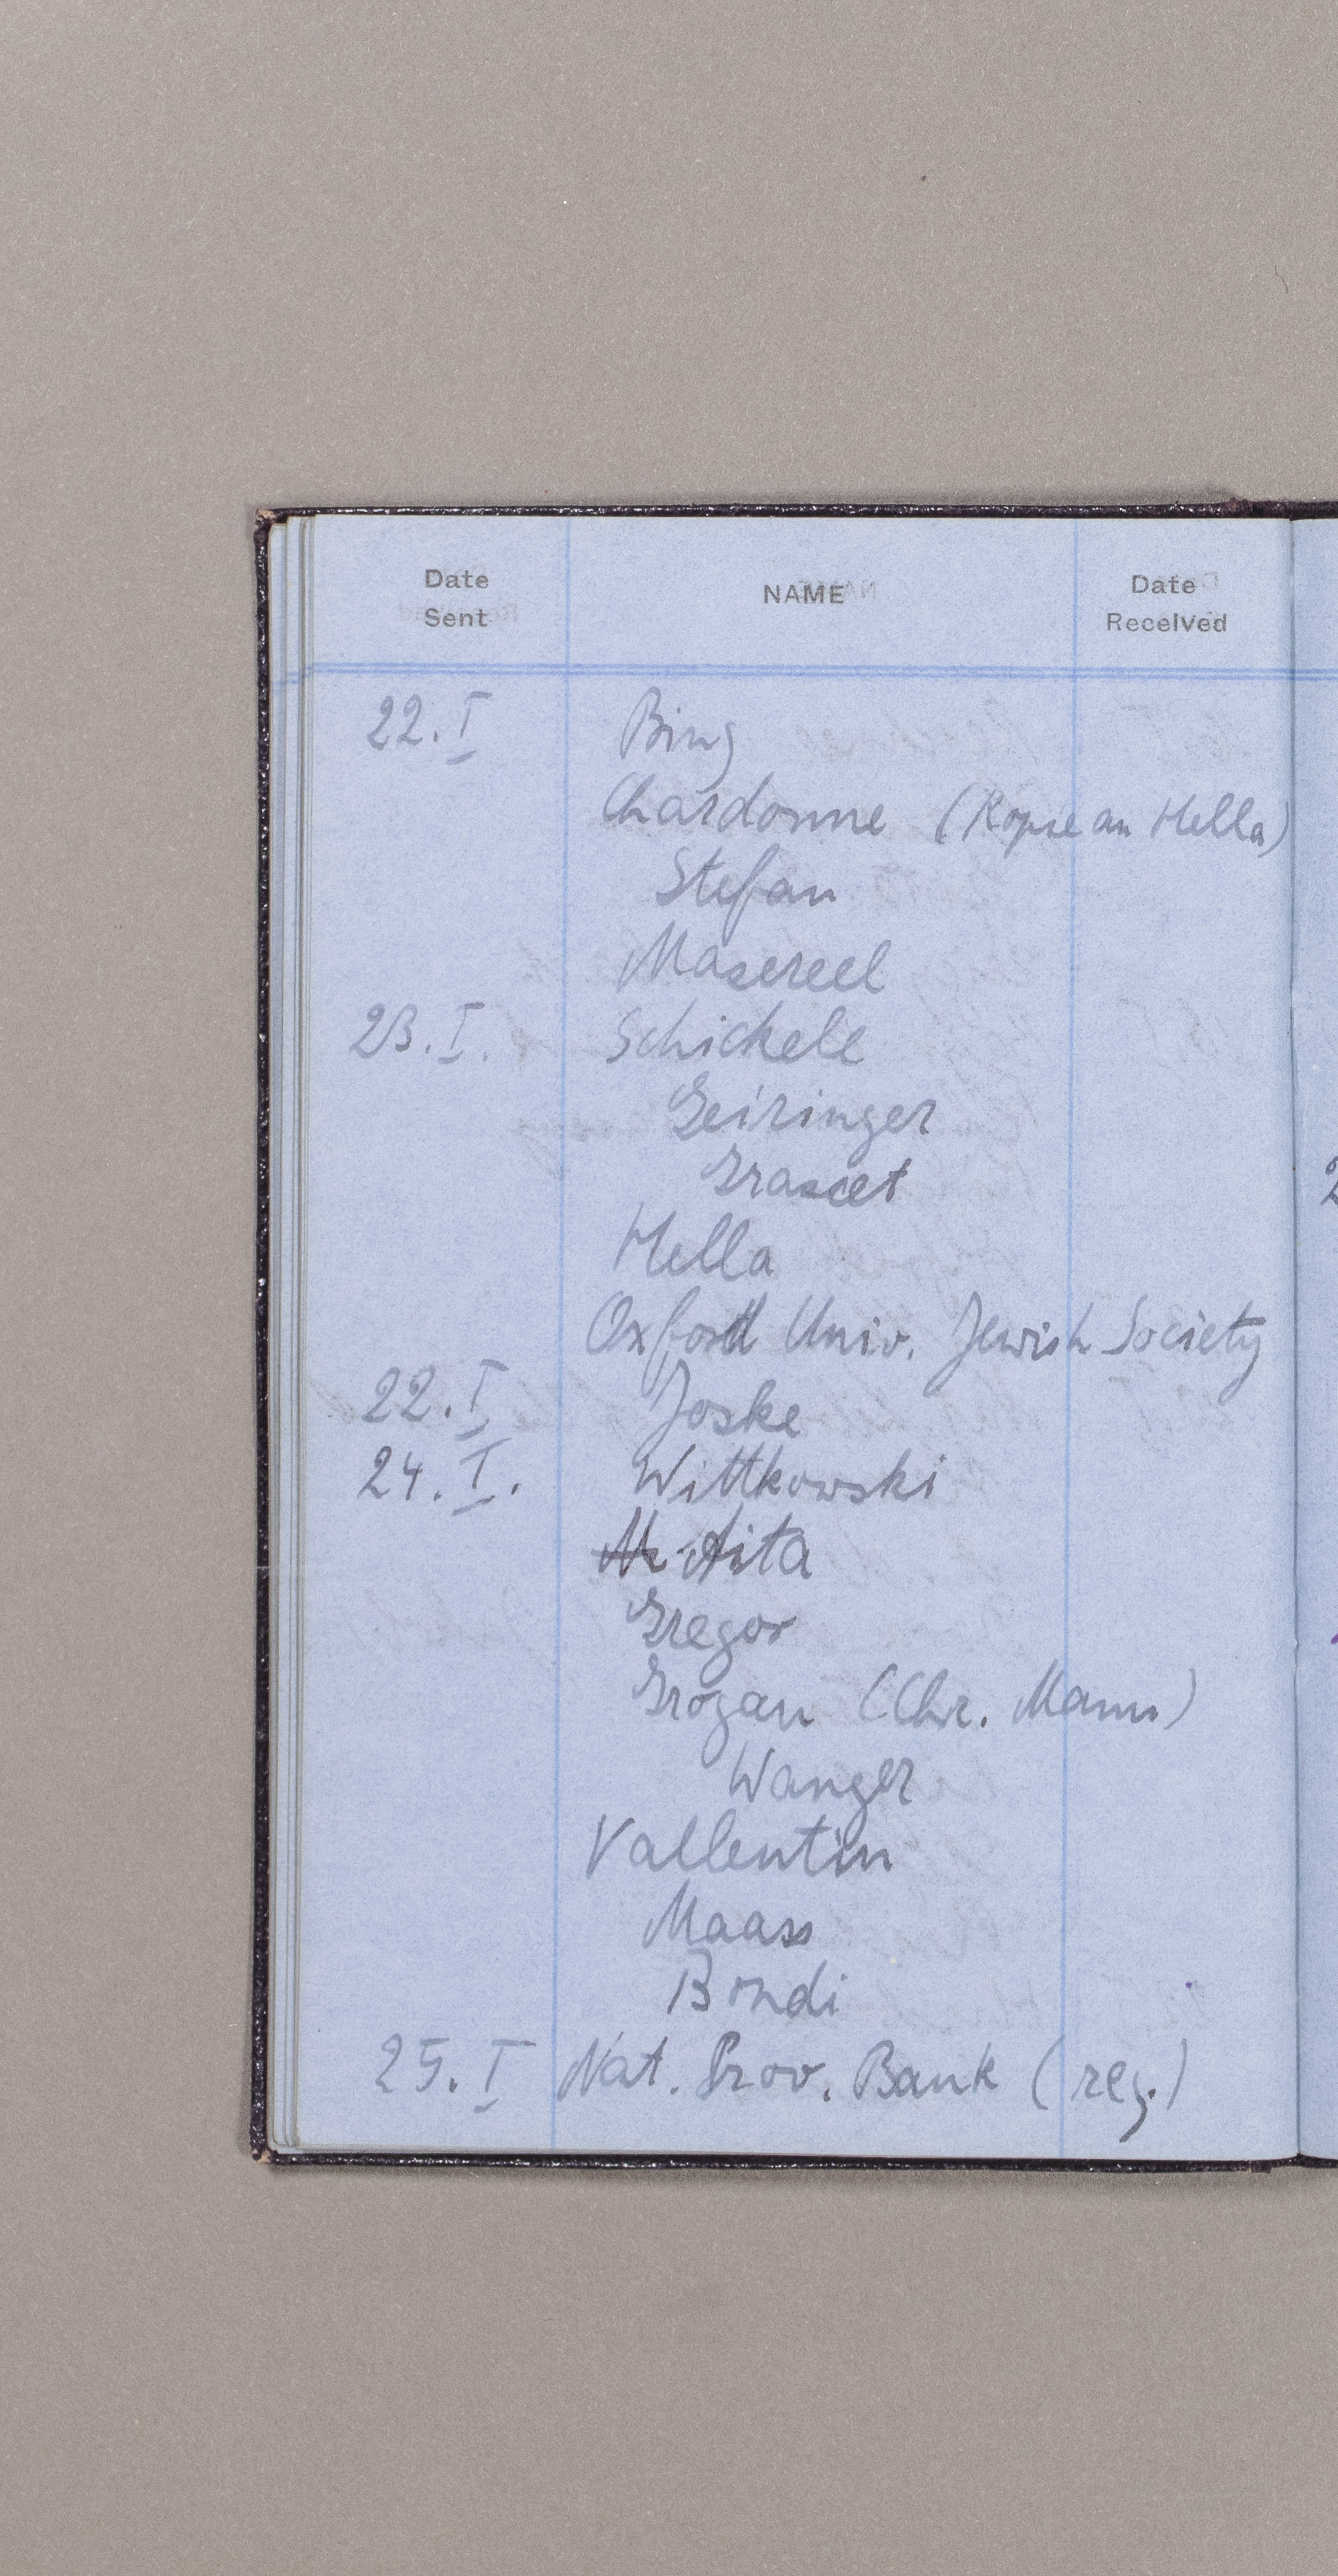 Date Sent NAME Date Received
22. I Bing
Chardonne (Kopie an Hella)
Stefan
Masereel
23. I. Schickele
Geiringer
Grasset
Hella
Oxford Univ. Jewish Society
22. I Joske
24. I. Wittkowski
Aita
Gregor
Grogan (Chr. Mann)
Wanger
Vallentin
Maass
Bondi
25. I Nat. Prov. Bank (reg.)